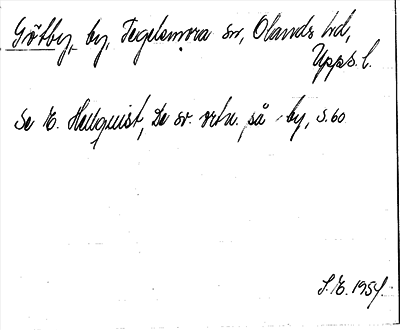 Götby, by, Tegelsmora sn, Olands hd,
Upps. l.
Se E. Hellquist, De sv. ortn. på -by, s. 60
S. E. 1954.